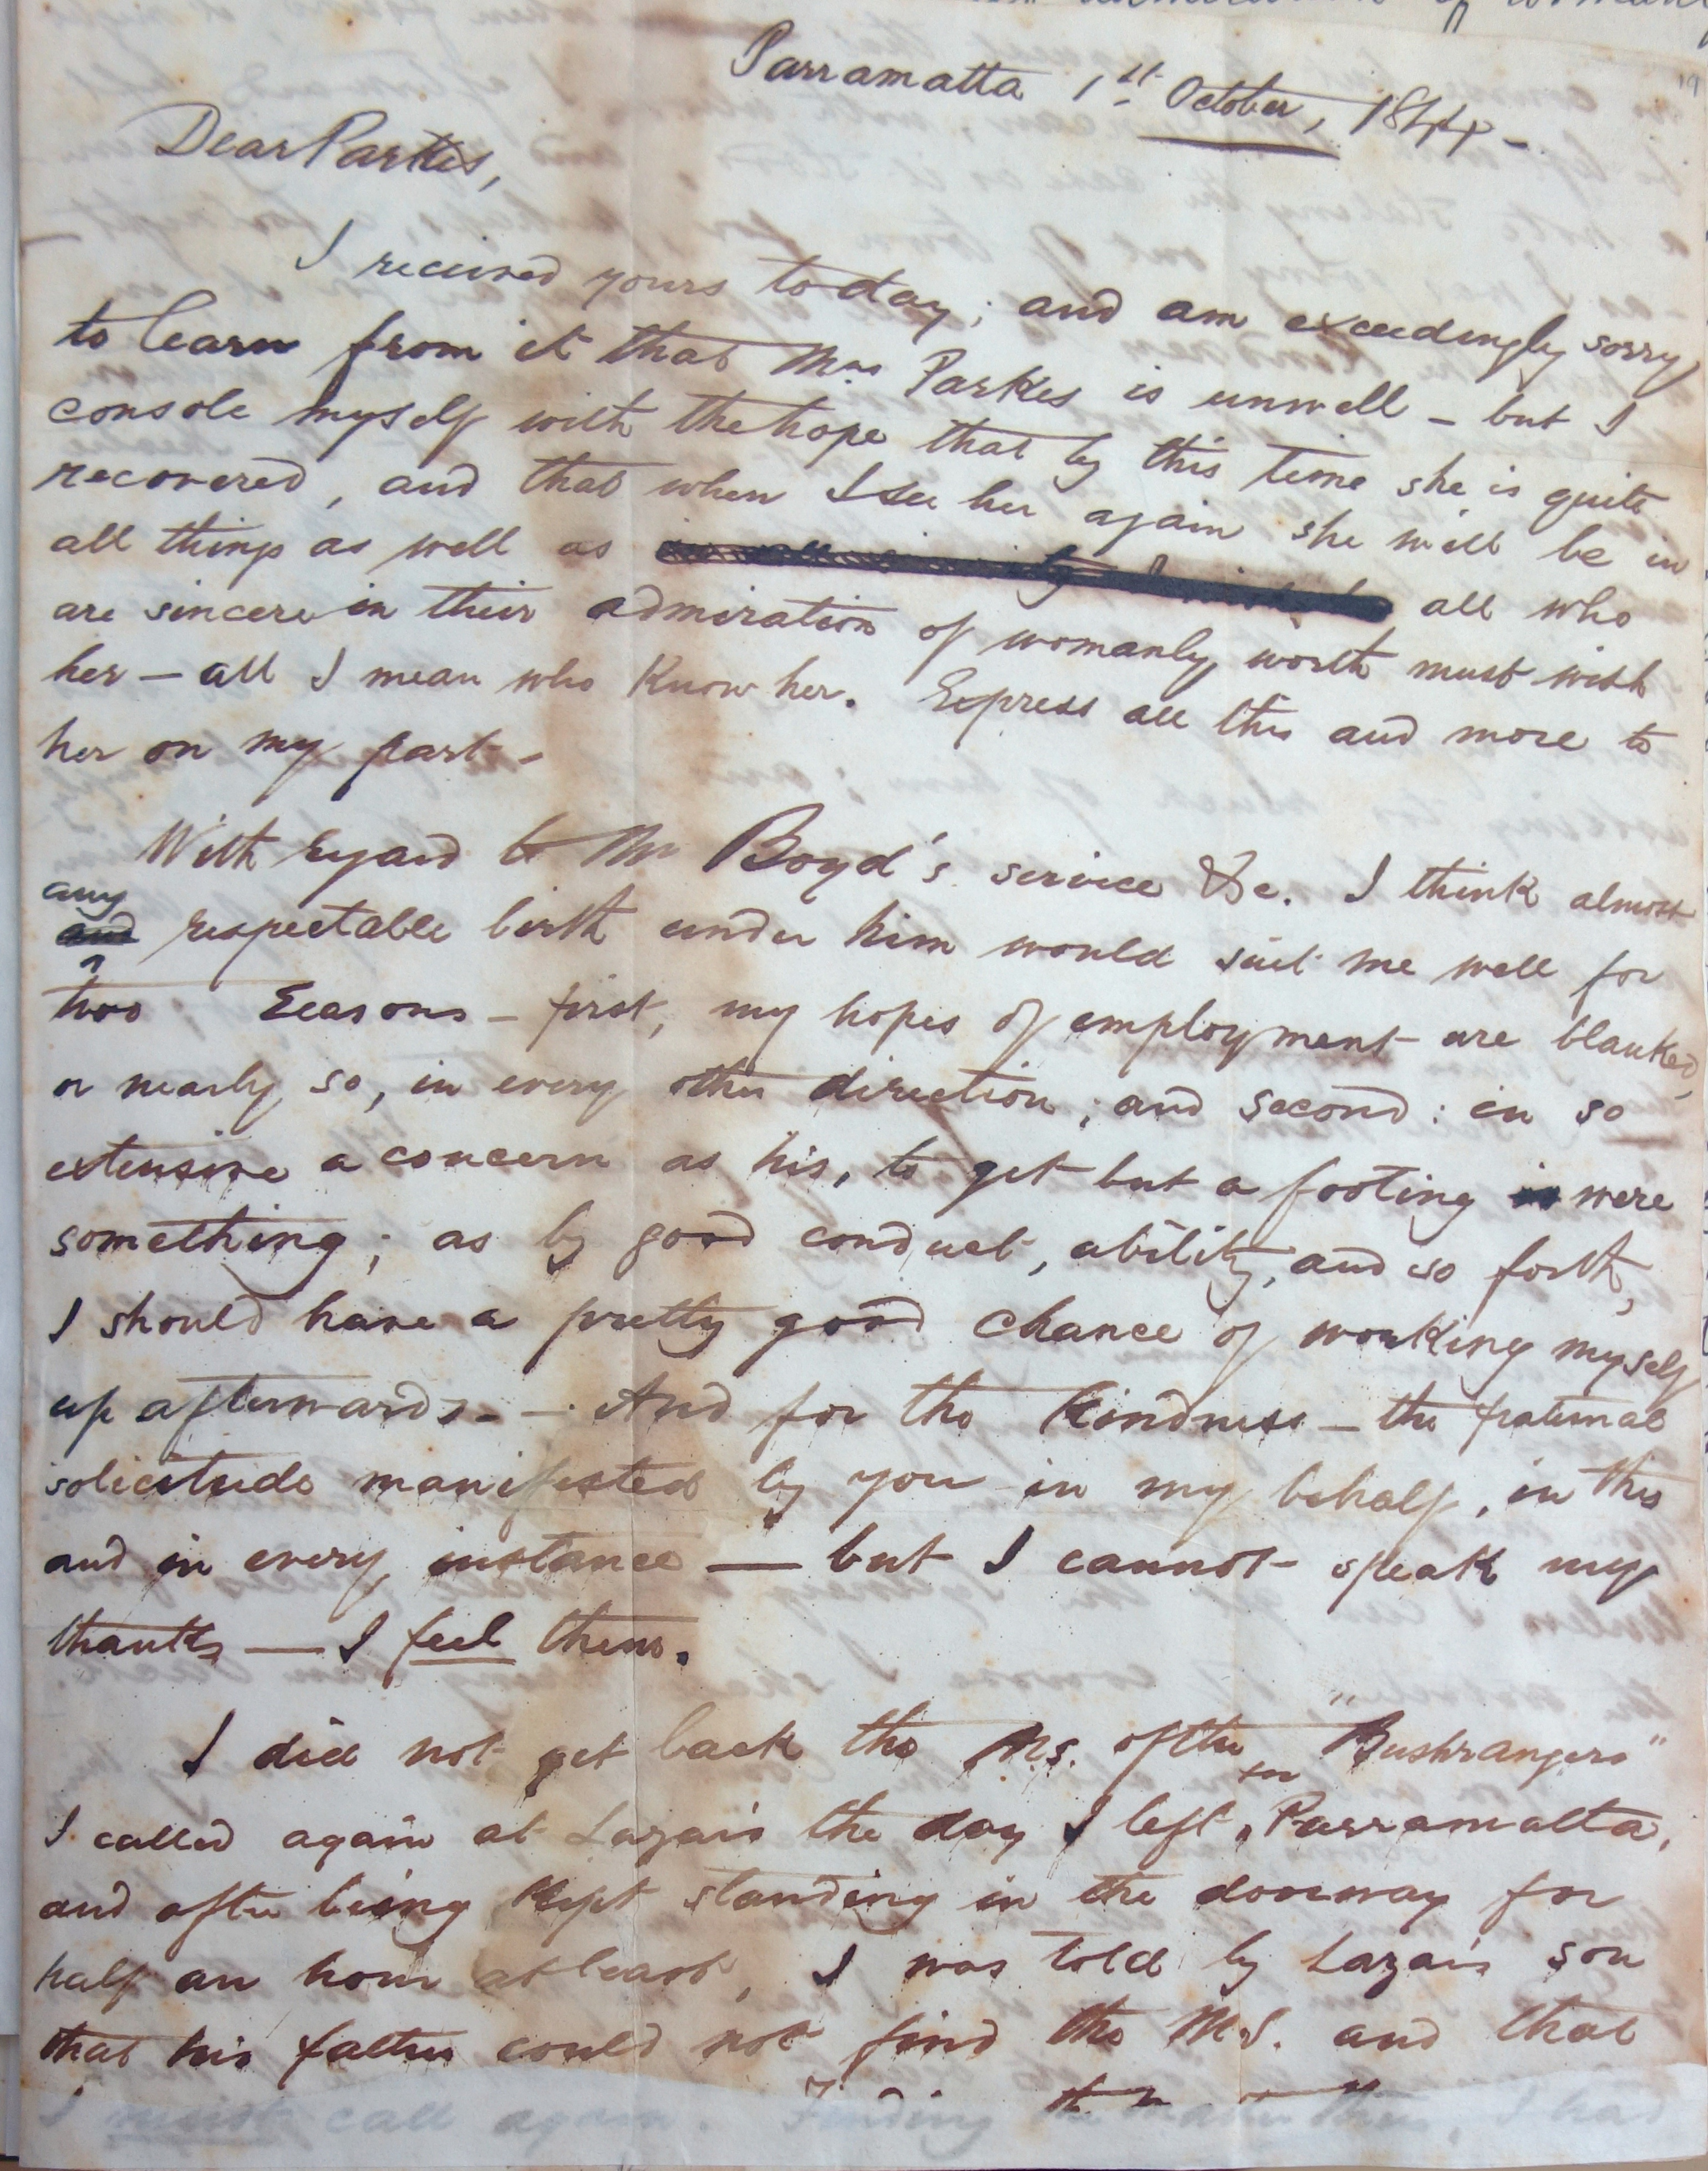 Parramatta 1st October, 1844 -
Dear Parkes,
I received yours today; and am exceedingly sorry
to learn from it that Mrs Parkes is unwell - but I
console myself with the hope that by this time she is quite
recovered, and that when I see her again she will be in
all things as well as all who
are sincere in their admiration of womanly worth must wish
her - all I mean who Know her. Express all this and more to
her on my part -
With regard to Mr Boyd's service &c. I think almost
any
and respectable birth under him would suit me well for
two Reasons - first, my hopes of employment are blanked,
or nearly so, in every other direction; and second: in so
extensive a concern as his, to get but a footing is were
something; as by good conduct, ability, and so forth,
I should have a pretty good chance of working myself
up afterwards. - And for the Kindness - the fraternal
solicitude manifested by you in my behalf, in this
and in every instance — but I cannot speak my
thanks — I feel them.
I did not get back the Ms. of the "Bushrangers"
for
I called again at Lazar's the day I left, Parramatta,
and after being Kept standing in the doorway for
half an hour at least, I was told by Lazar's son
that his father could not find the M.S. and that
I must call again. Finding the matter thus, I had